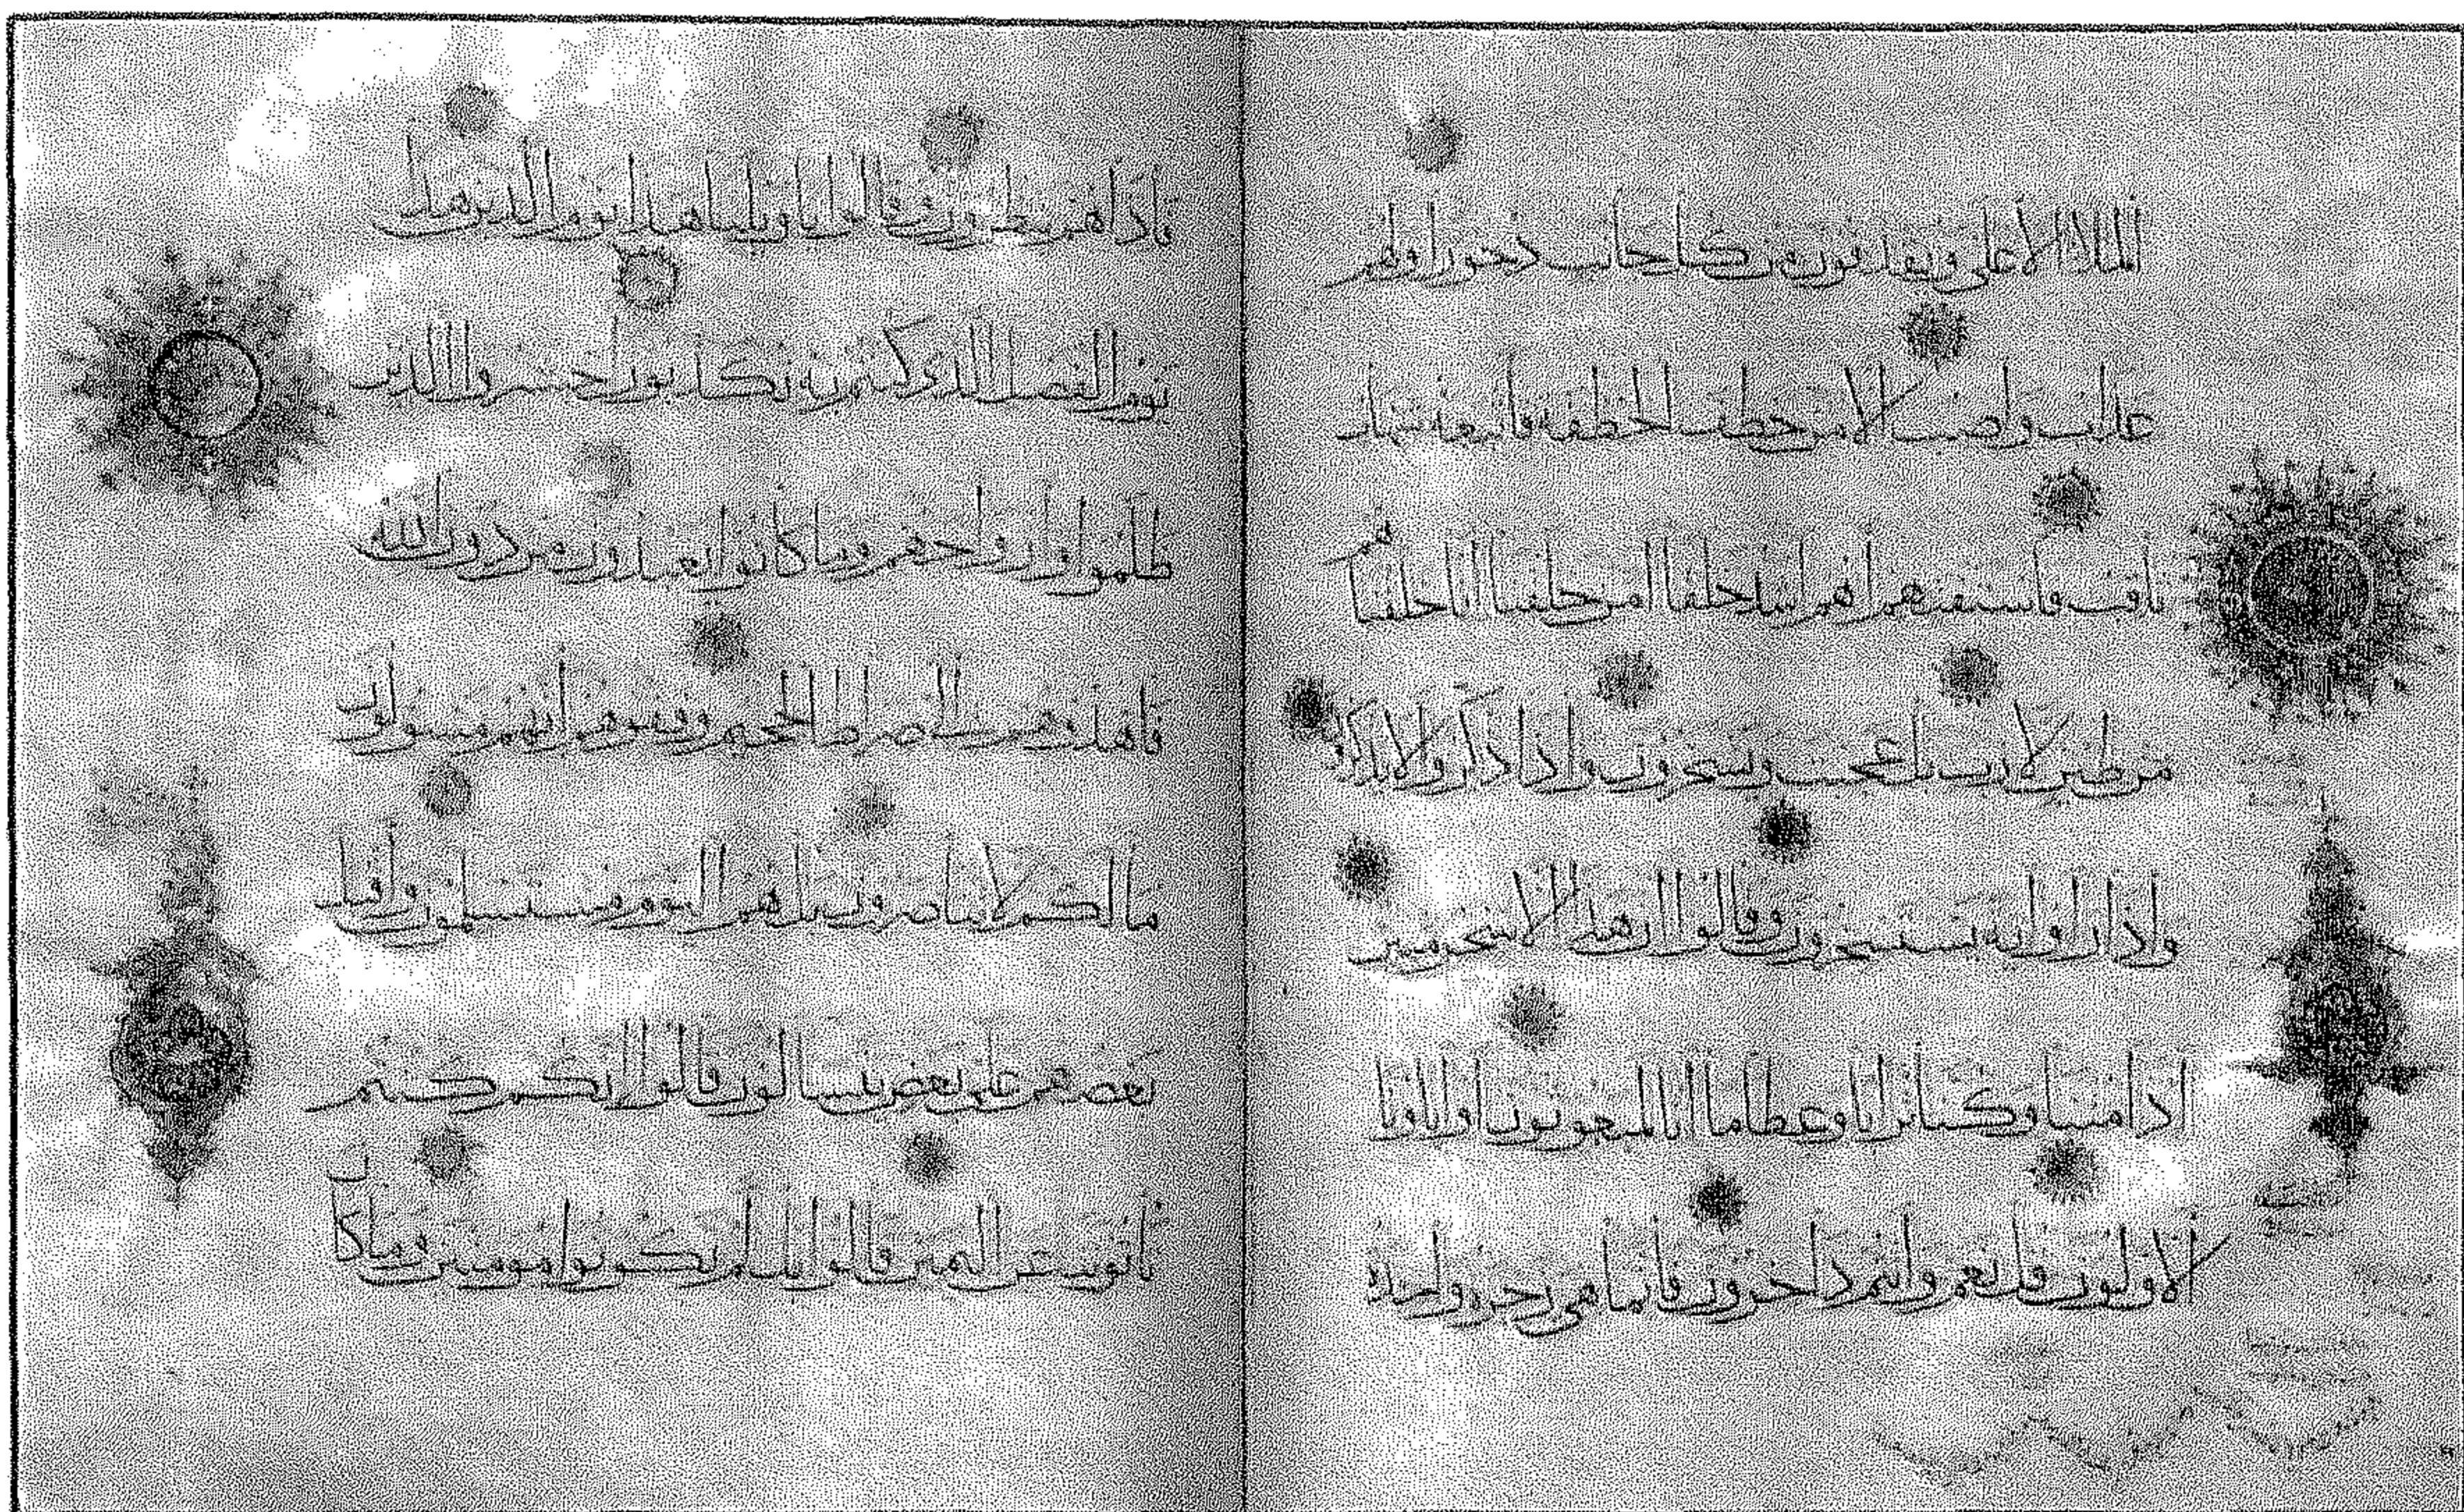 الملا الاعلى ويقذفون من كل جانب دحورا ولهم
عذاب واصب الا من خطف الخطفة فاتبعه شهاب
ثاقب فاستفتهم اهم اشد خلقا ام من خلقنا انا خلقناهم
من طين لازب بل عجبت ويسخرون واذا ذكروا لا يذكرون
واذا راوا اية يستسخرون وقالوا ان هذا الا سحر مبين
اذا متنا وكنا ترابا وعظاما انا لمبعوثون اواباونا
الاولون قل نعم وانتم داخرون فانما هي زجرة واحدة
فاذا هم ينظرون وقالوا يا ويلنا هذا يوم الدين هذا
يوم الفصل الذي كنتم به تكذبون احشروا الذين
ظلموا وازواجهم وما كانوا يعبدون من دون الله
فاهدوهم الى صراط الجحيم وقفوهم انهم مسئولون
ما لكم لا تناصرون بل هم اليوم مستسلمون واقبل
بعضهم على بعض يتسالون قالوا انكم كنتم
تاتوننا عن اليمين قالوا بل لم تكونوا مومنين وما كان